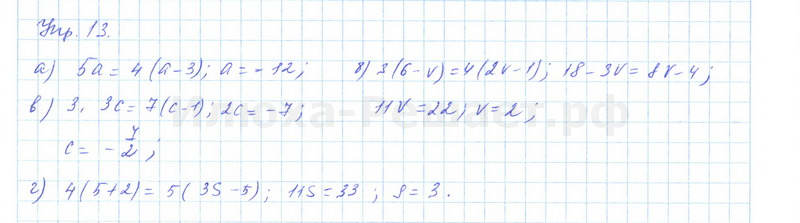 Упр. 13.
а) 5a = 4(a-3); a = -12; б) 3(6-v) = 4(2v-1); 18-3v = 8v-4;
в) 3. 3c = 7(c-1); 2c = -7; 11v = 22; v = 2;
c = -7/2;
г) 4(5+2) = 5(3S-5); 11S = 33; S = 3.
Илюха-Решает.рф